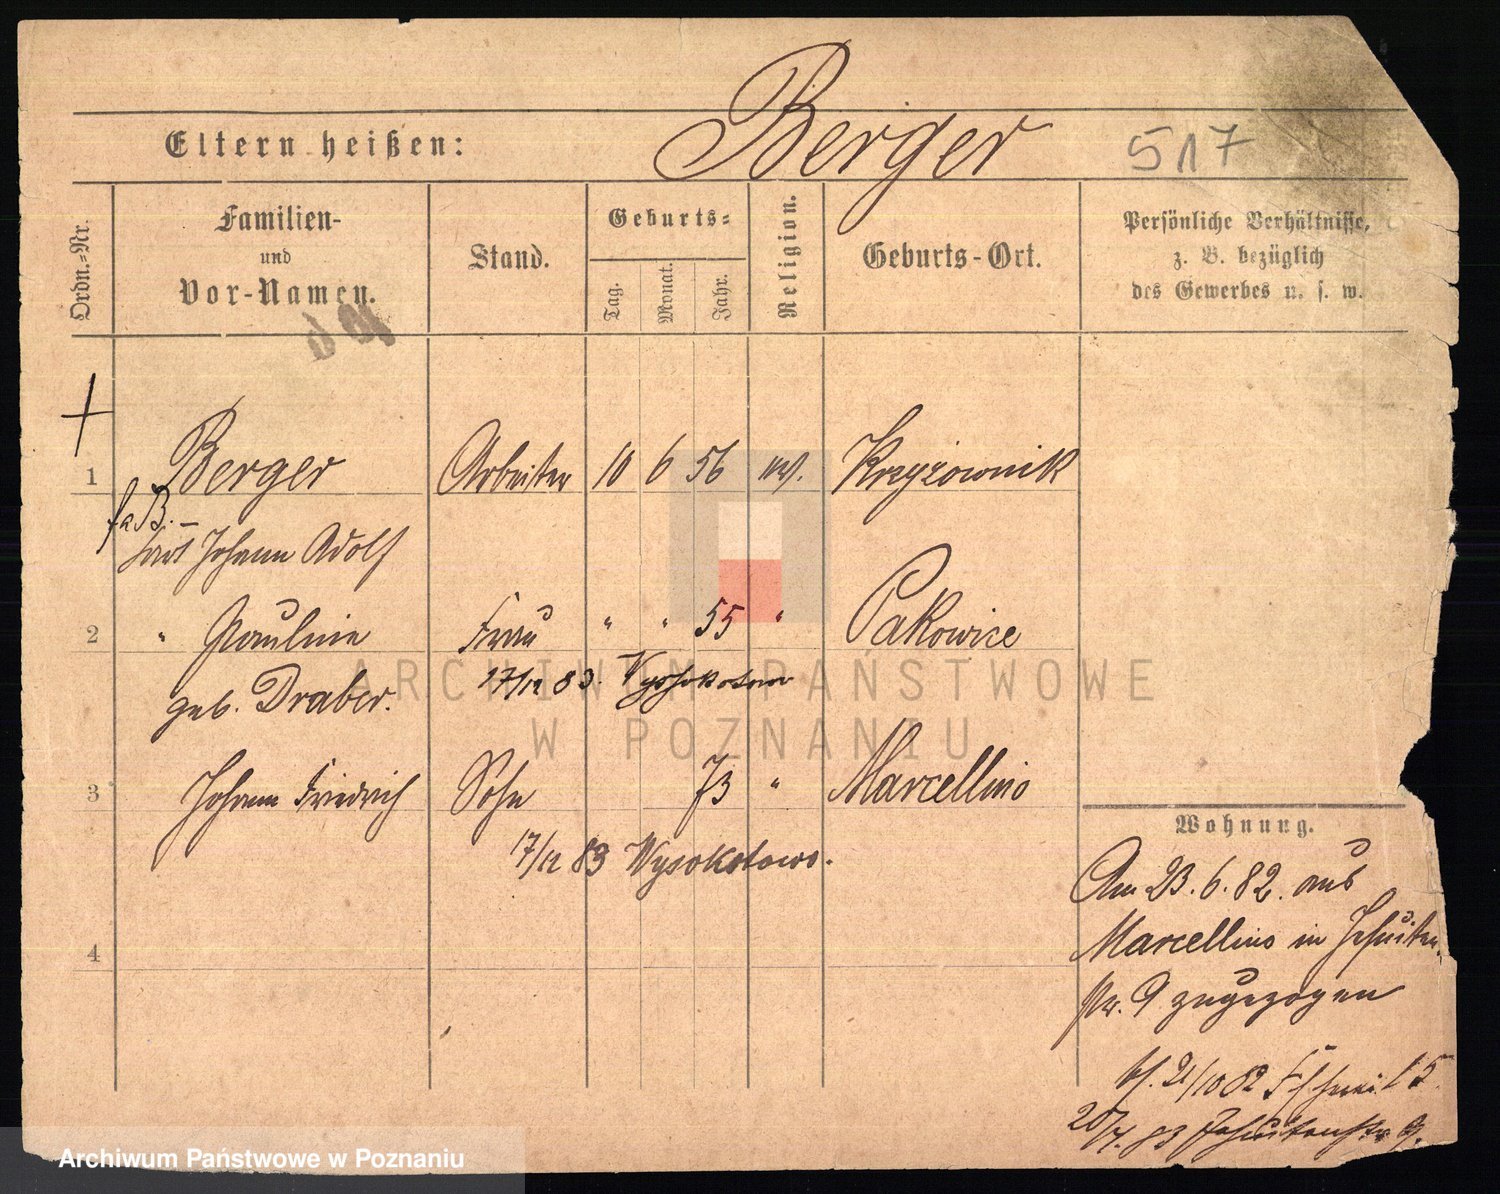 Berger
517
Eltern heißen:
Ordn.=Nr.
Familien-
und
Vor-Namen.
Stand.
Geburts=
Tag.
Monat.
Jahr.
Religion.
Geburts-Ort.
Persönliche Verhältnisse,
z. B. bezüglich
des Gewerbes u. s. w.
1 Berger Arbeiter 10 6 56 Krzyżownik
Johann Adolf
2 " Pauline Frau " " 55 " Pakowice
17/12 83. Wyssokotowo
geb. Draber.
3 Johann Friedrich Sohn 73 " Marcellino
17/12 83 Wysokotowo.
4
Wohnung.
Am 23. 6. 82. aus
Marcellino in Jesuiten
str. 9 zugezogen
21/10 82 15
20/4. 83 Jesuitenstr 9.
ARCHIWUM PAŃSTWOWE
W POZNANIU
Archiwum Państwowe w Poznaniu